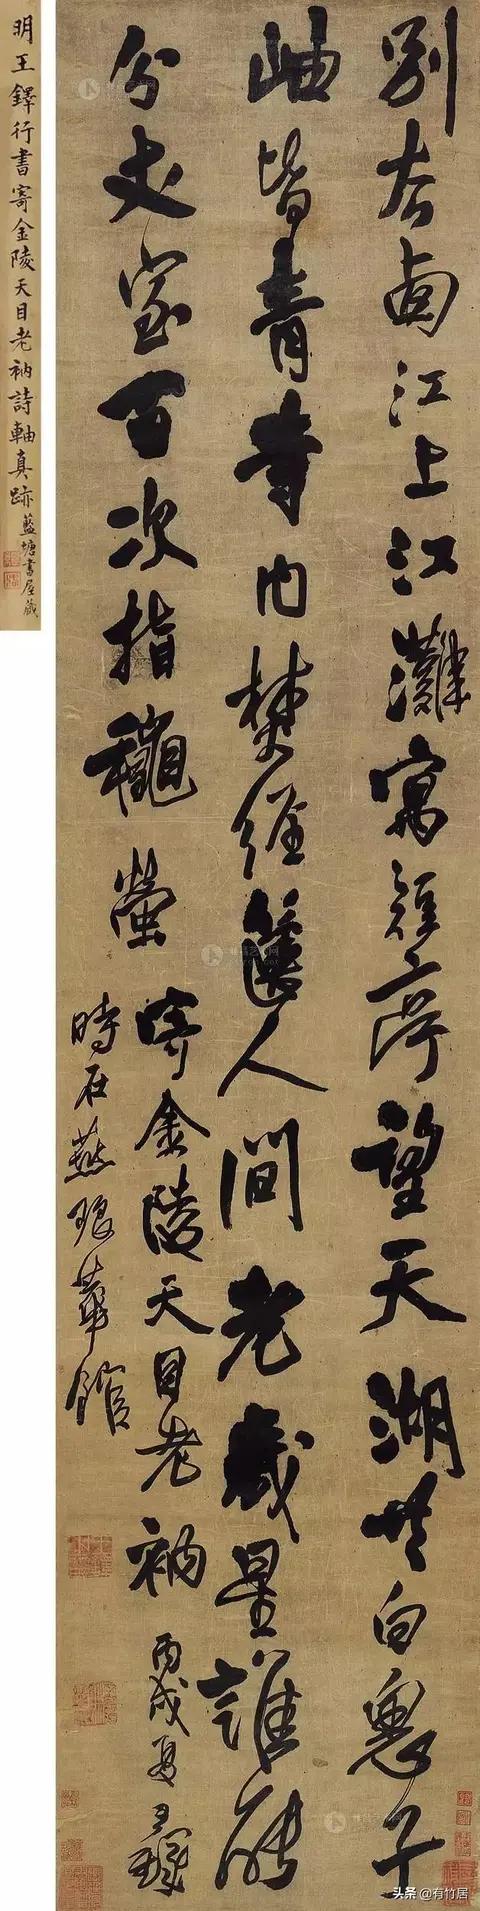 別江上江灘寓短亭望天湖共白鬼子
岫皆青寺內焚經人間老歲星誰能
分丈室百次指穐螢
寄金陵天目老衲 丙戌夏王鐸
時在燕琅華館
明王鐸行書寄金陵天目老衲詩軸真跡 藍塘書屋藏
头条 @有竹居